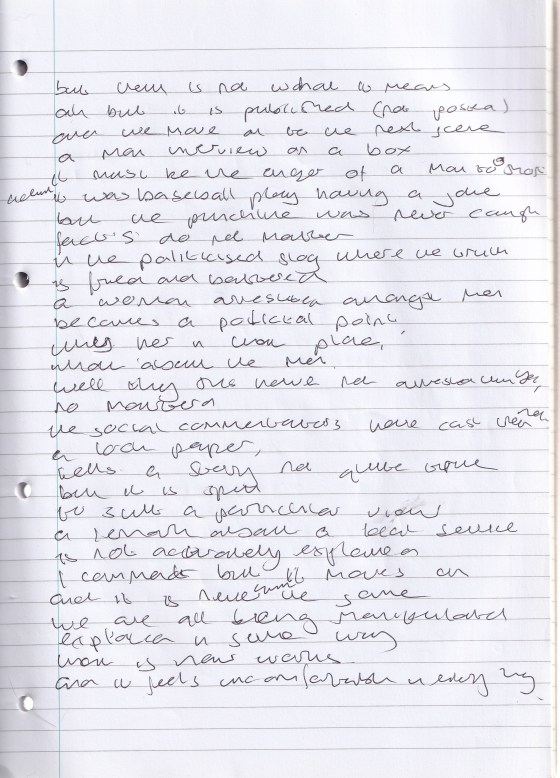 but then is not what it means
ah but it is published (not posted)
and we move on to the next scene
a man interview on a box
it must be the anger of a man
it was baseball play having a joke
but the punchline was never caught
facts do not matter
in the politicised slog where the truth
is fried and battered
a women arrested amongst men
becomes a political point,
was her in that place,
what about the men.
well they have not arrested
no
the social commentators have cast
a local paper,
tells a story not quite true
but it is
to suit a particular view
a remark about a bad service
is not accurately explained
I comments but it moves on
and it is never the same
we are all being manipulated
exploited in some way
that is how works.
and it feels uncomfortable in every